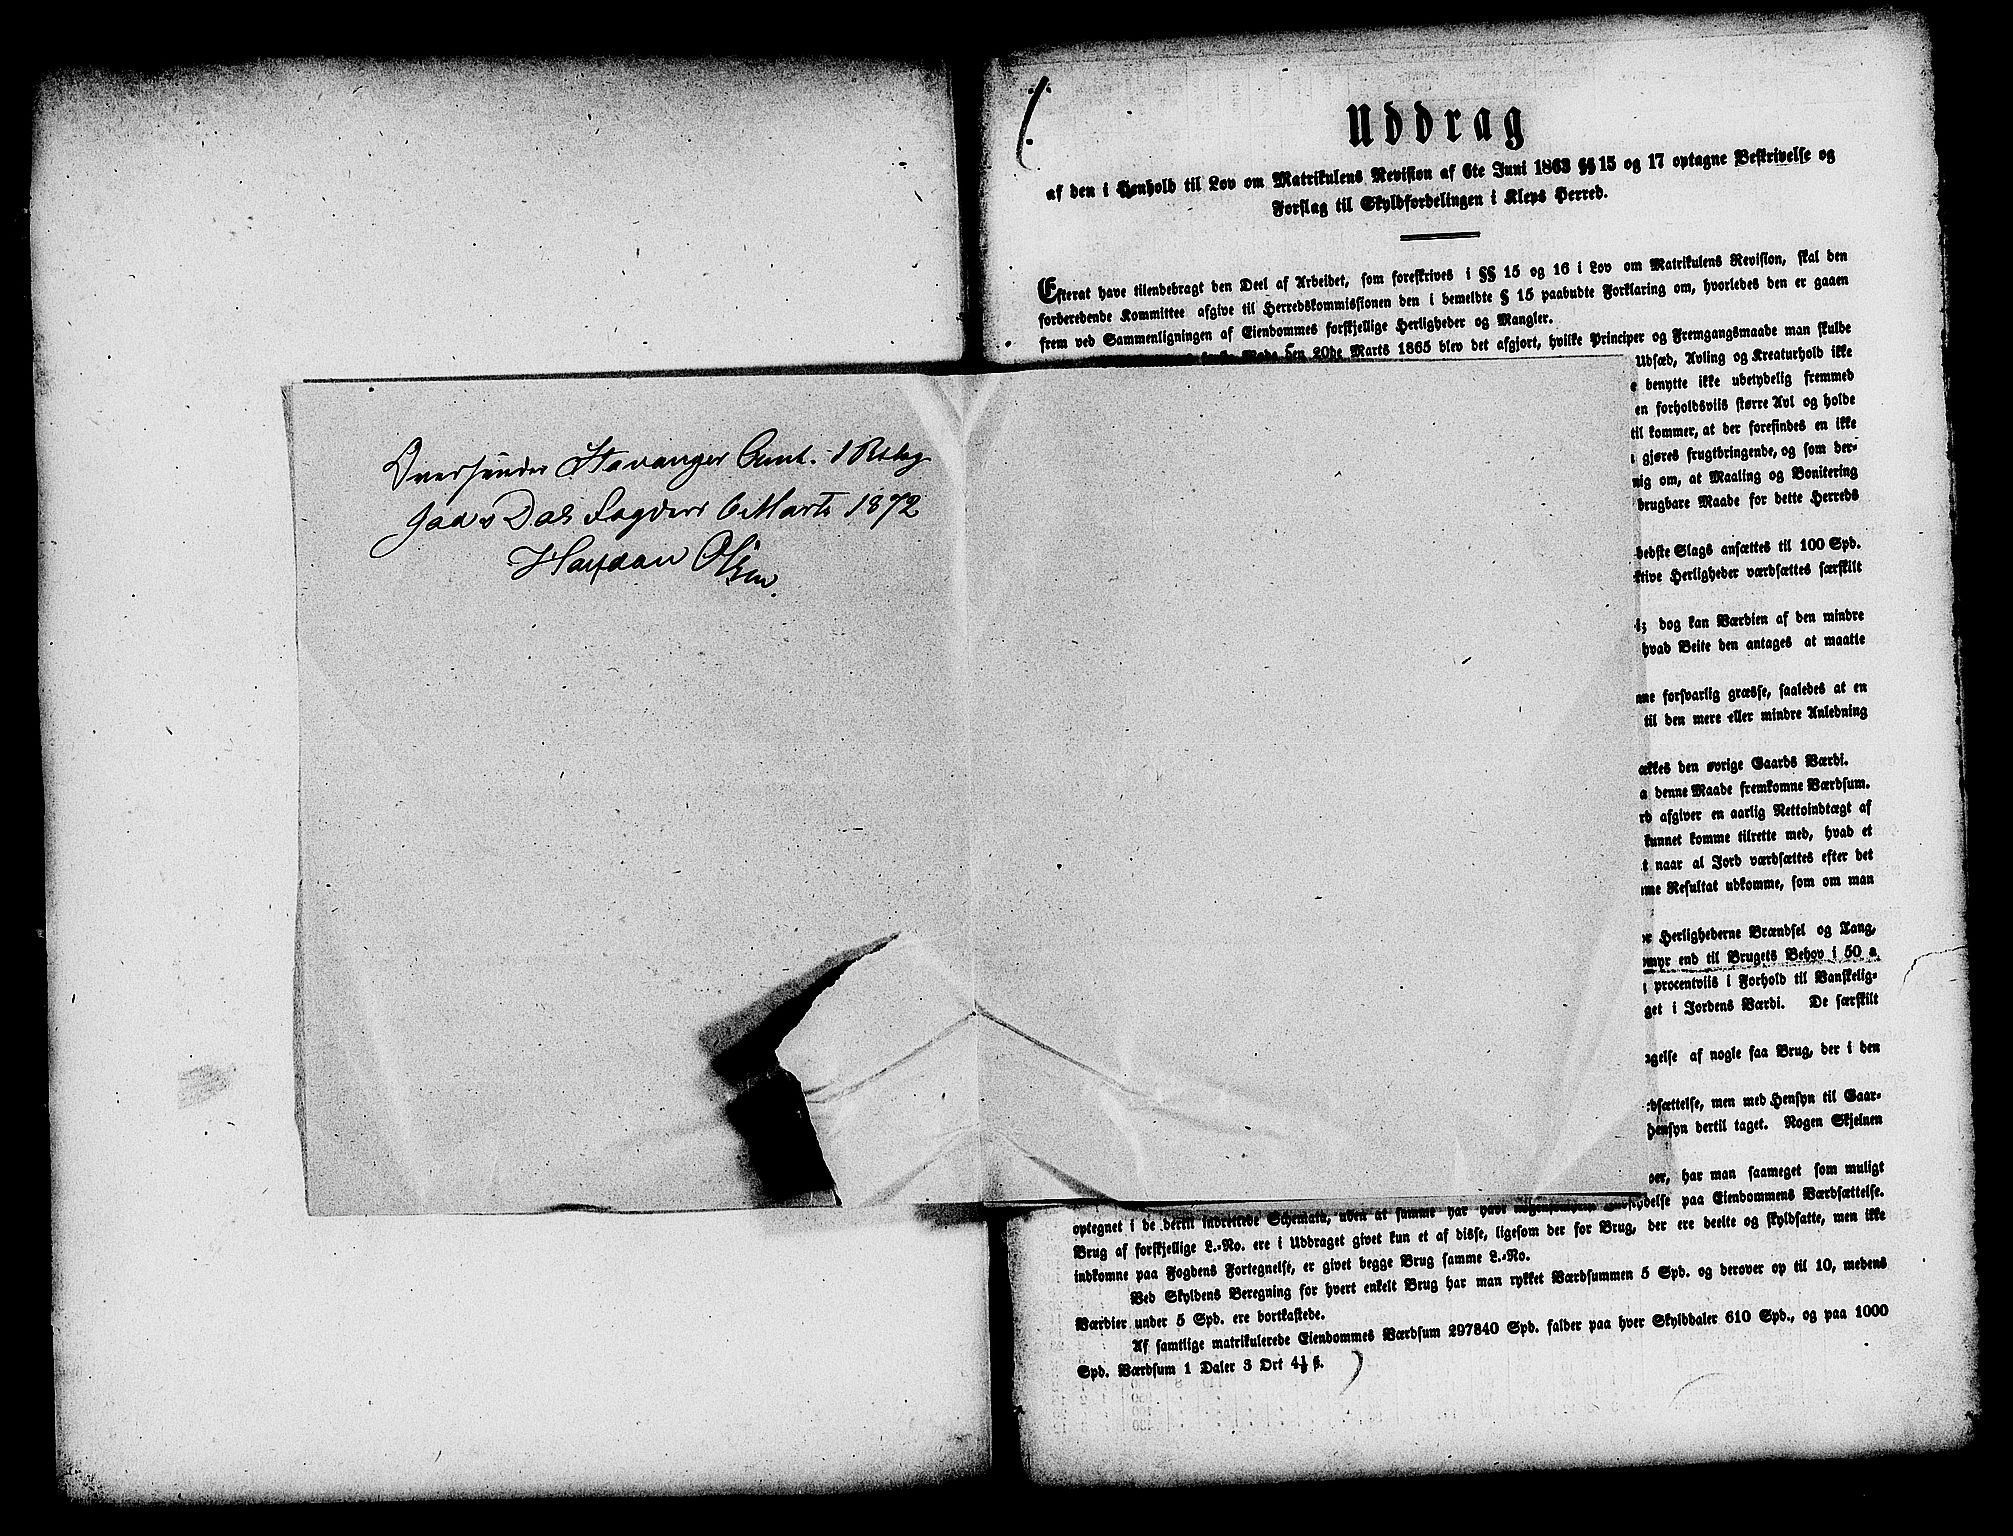 Oversendes Stavanger Amt.
Jæd. & Dal. Fogderi 6 Marts 1872
Halfdan Olsen
Uddrag
af den i Henhold til Lov om Matrikulens Revision af 6te Juni 1863 §§ 15 og 17 optagne Beskrivelse og
Forslag til Skyldfordelingen i Kleps Herred.
Efterat have tilendebragt den Deel af Arbeidet, som foreskrives i §§ 15 og 16 i Lov om Matrikulens Revision, skal den
forberedende Kommittee afgive til Herredskommissionen den i bemeldte § 15 paabudte Forklaring om, hvorledes den er gaaen
frem ved Sammenligningen af Eiendommes forskjellige Herligheder og Mangler.
den 20de Marts 1865 blev det afgjort, hvilke Principer og Fremgangsmaade man skulde
Udsæd, Avling og Kreaturhold ikke
benytte ikke ubetydelig fremmed
en forholdsviis større Avl og holde
til kommer, at der forefindes en ikke
gjøres frugtbringende, og som der-
nig om, at Maaling og Bonitering
brugbare Maade for dette Herreds
bedste Slags ansættes til 100 Spd.
ktive Herligheder værdsættes særskilt
dog kan Værdien af den mindre
hvad Beite den antages at maatte
me forsvarlig græsse, saaledes at en
til den mere eller mindre Anledning
ækkes den øvrige Gaards Værdi.
a denne Maade fremkomne Værdsum.
rd afgiver en aarlig Nettoindtægt af
kunnet komme tilrette med, hvad et
t naar al Jord værdsættes efter det
me Resultat udkomme, som om man
Herlighederne Brændsel og Tang,
myr end til Brugets Behov i 50 a
procentviis i Forhold til Vanskelig-
get i Jordens Værdi. De særskilt
gelse af nogle faa Brug, der i den
dsættelse, men med Hensyn til Gaar-
Hensyn dertil taget. Nogen Skjelnen
ver, har man saameget som muligt
optegnet i de dertil indrettede Schemata, uden at samme har havt nogensomhelst Indflydelse paa Eiendommens Værdsættelse.
Brug af forskjellige L.-No. ere i Uddraget givet kun et af disse, ligesom der for Brug, der ere deelte og skyldsatte, men ikke
indkomne paa Fogdens Fortegnelse, er givet begge Brug samme L.-No.
Ved Skyldens Beregning for hvert enkelt Brug har man rykket Værdsummen 5 Spd. og derover op til 10, medens
Værdier under 5 Spd. ere bortkastede.
Af samtlige matrikulerede Eiendommes Værdsum 297840 Spd. falder paa hver Skylddaler 610 Spd., og paa 1000
Spd. Værdsum 1 Daler 3 Ort 4½ ß.